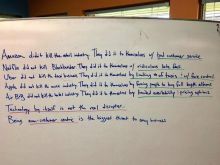 Amazon did not kill the retail industry. They did it to themselves w/ bad customer service
Netflix did not kill Blockbuster. They did it to themselves w/ ridiculous late fees
Uber did not kill the taxi business. They did it to themselves by limiting # of taxis w/ fare control
Apple did not kill the music industry. They did it to themselves by forcing people to buy full length albums
Air BnB did not kill the hotel industry. They did it to themselves by limited availability & pricing options
Technology by itself is not the real disrupter.
Being non-customer centric is the biggest threat to any business